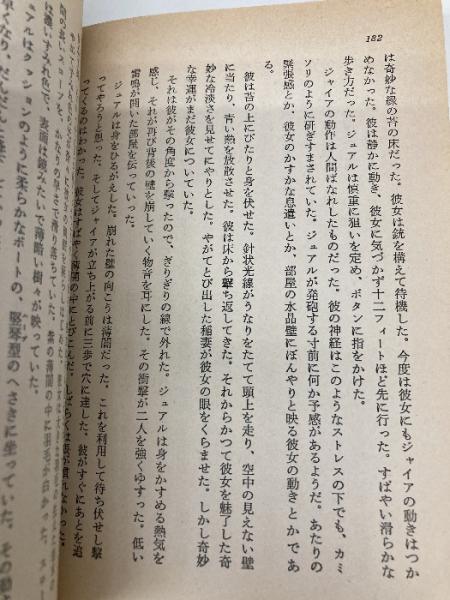 182
は奇妙な緑の苔の床だった。彼女は銃を構えて待機した。今度は彼女にもジャイアの動きはつか
めなかった。彼は静かに動き、彼女に気づかず十二フィートほど先に行った。すばやい滑らかな
歩き方だった。ジュアルは慎重に狙いを定め、ボタンに指をかけた。
ジャイアの動作は人間ばなれしたものだった。彼の神経はこのようなストレスの下でも、カミ
ソリのように研ぎすまされていた。ジュアルが発砲する寸前に何か予感があるようだ。あたりの
緊張感とか、彼女のかすかな息遣いとか、部屋の水晶壁にぼんやりと映る彼女の動きとかであ
る。
彼は苔の上にぴたりと身を伏せた。針状光線がうなりをたてて頭上を走り、空中の見えない壁
に当たり、青い熱を放散させた。彼は床から撃ち返してきた。それからかつて彼女を魅了した奇
妙な冷淡さを見せてにやりとした。やがてとび出した稲妻が彼女の眼をくらました。しかし奇妙
な幸運がまだ彼女についていた。
それは彼がその角度から撃ったので、ぎりぎりの線で外れた。ジュアルは身をかすめる熱気を
感じ、それが再び背後の壁を崩していく物音を耳にした。その衝撃が二人を強くゆすった。低い
雷鳴が開いた部屋を伝っていった。
ジュアルは身をひるがえした。崩れた壁の向こうは薄闇だった。これを利用して待ち伏せし撃
ってやろうと思った。そしてジャイアが立ち上がる前に三歩で穴に達した。彼がすぐにあとを追
ってくるのはわかった。彼女はすばやく薄闇の中にとびこんだ。しばらくは眼が慣れなかった。
間の長いスロープを、かなりの速さで滑り落ちていた。茶の薄闇の中に羽毛が白
は濃いすみれ色で、表面は鏡みたいで薄暗い樹々が映っていた。
ュアルはクッションのように柔らかなボートの、竪琴型のへさきに坐っていた。その
早くなり、だんだんと